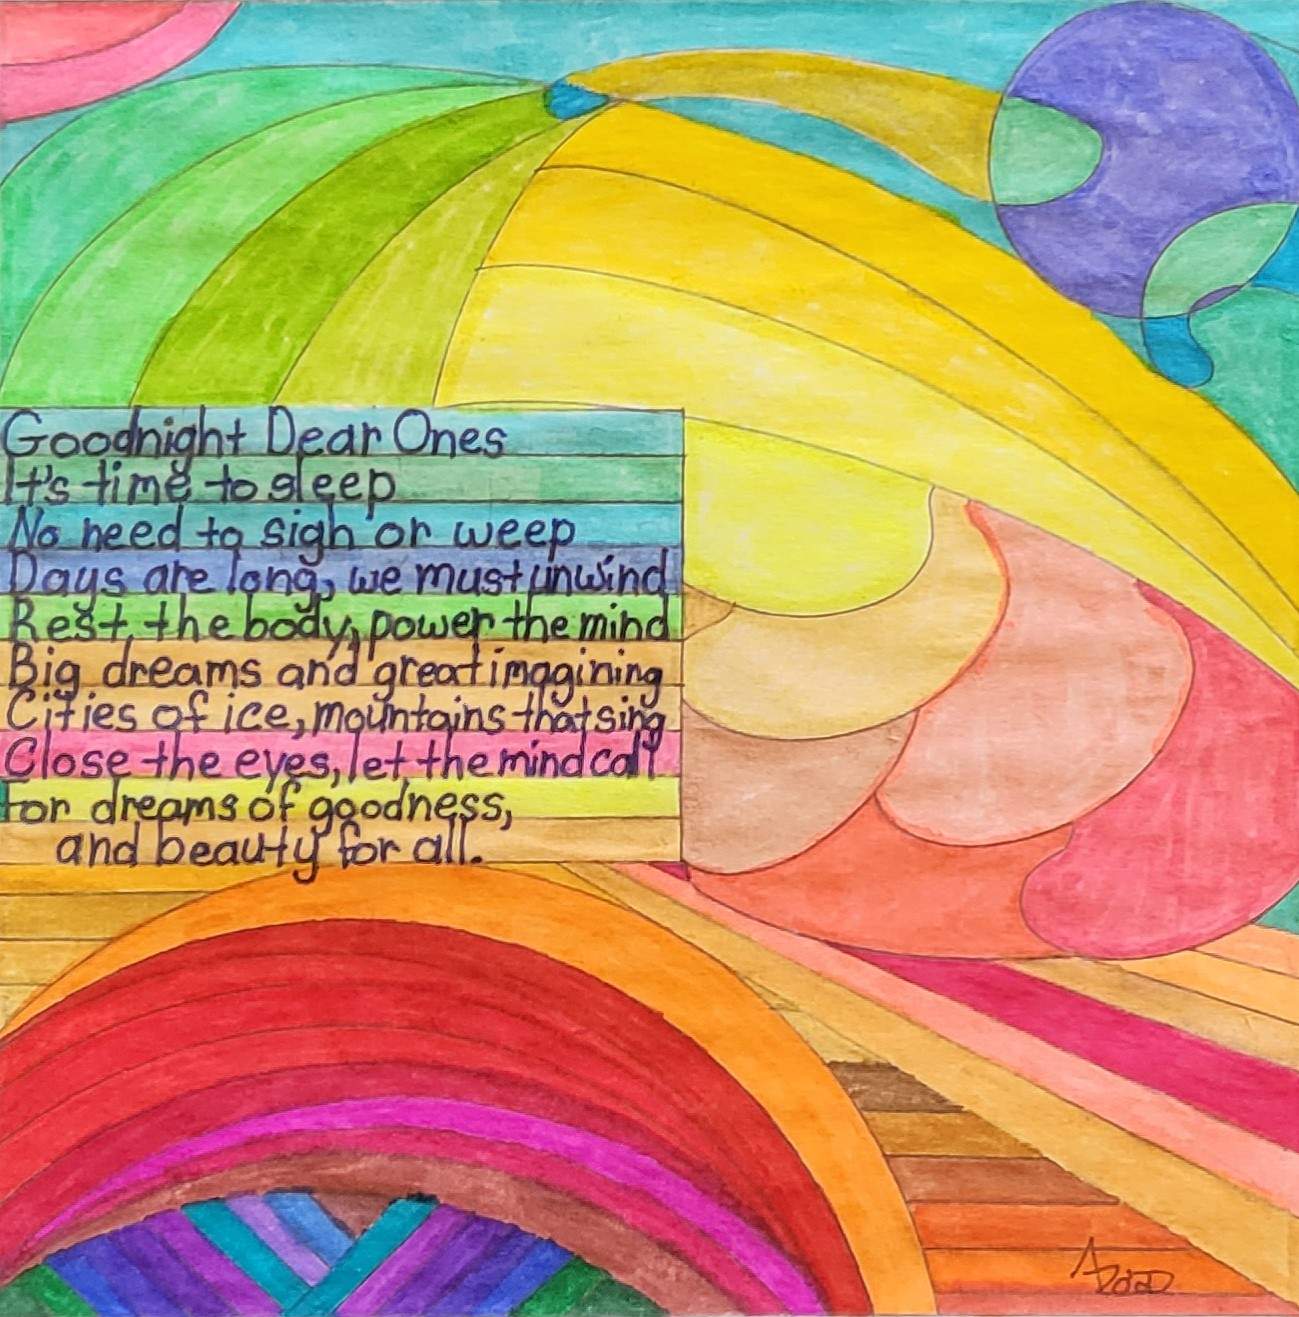 Goodnight Dear Ones
It's time to sleep
No need to sigh or weep
Days are long, we must unwind
Rest, the body, power the mind
Big dreams and great imagining
Cities of ice, mountains that sing
Close the eyes, let the mind call
for dreams of goodness,
and beauty for all.